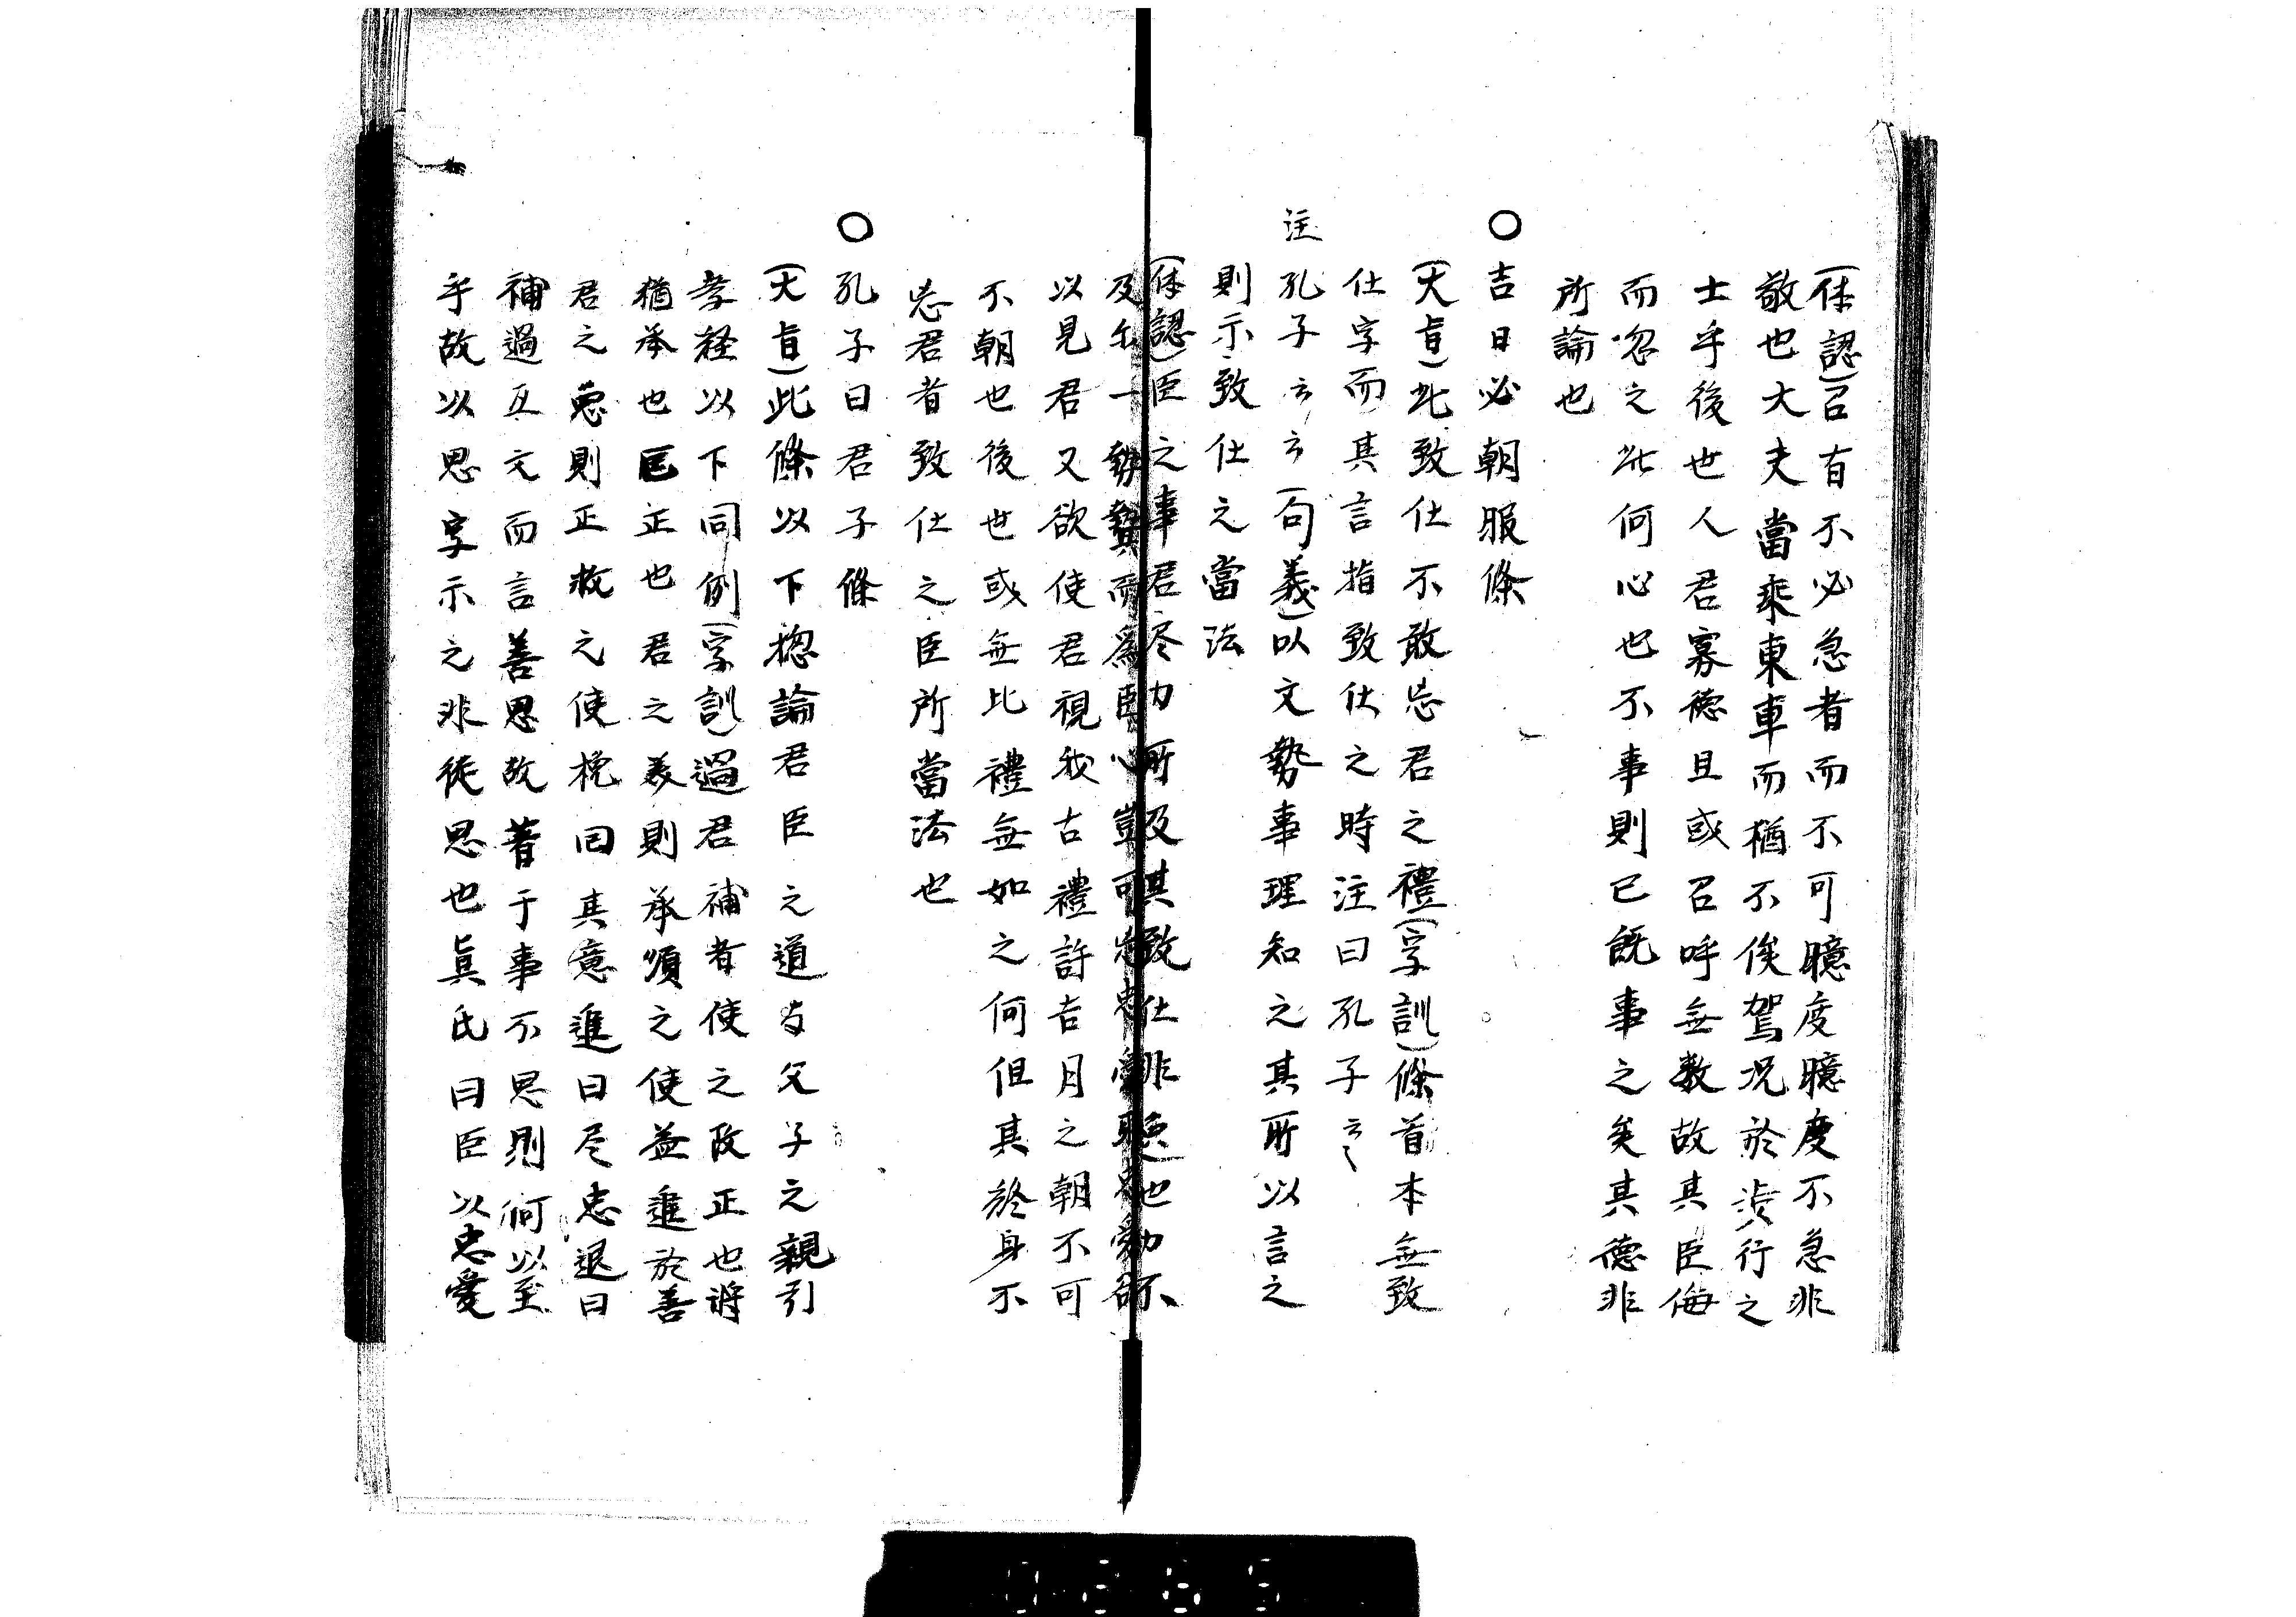 (体認)召有不必急者而不可臆度臆度不急非
敬也大夫當乘東車而猶不俟駕況於徒行之
士乎後世人君寡德且或召呼無數故其臣侮
而忽之此何心也不事則已既事之矣其德非
所論也
○吉日必朝服條
(大旨)此致仕不敢忘君之禮(字訓)條首本無致
仕字而其言指致仕之時注曰孔子云〻
注孔子云云(句義)以文勢事理知之其所以言之
則示致仕之當法
(体認)臣之事君尽力所及其致仕非也不
及而為臣心豈可
以見君又欲使君視我古禮許吉月之朝不可
不朝也後世或無比禮無如之何但其於身不
忘君者致仕之臣所當法也
○孔子曰君子條
(大旨)此條以下揔論君臣之道与父子之親引
孝経以下同例(字訓)過君補者使之改正也將
猶承也匡正也君之美則承順之使益進於善
君之惡則正救之使挽回其意進曰尽忠退曰
補過互文而言善思故著于事不思則何以至
乎故以思字示之非徒思也眞氏曰臣以忠愛